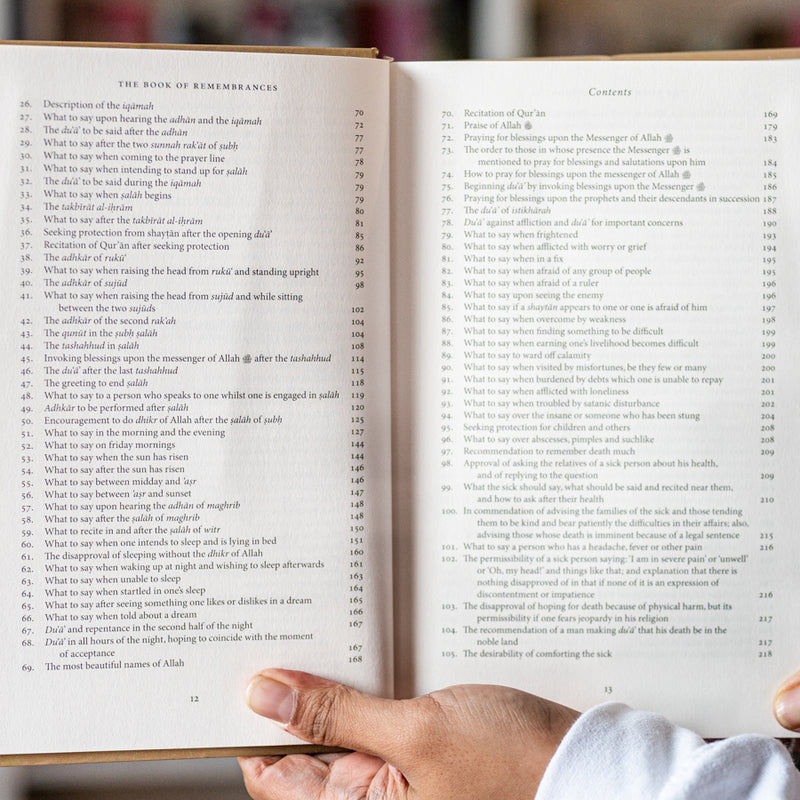 THE BOOK OF REMEMBRANCES
26. Description of the iqāmah 70
27. What to say upon hearing the adhān and the iqāmah 72
28. The duʿāʾ to be said after the adhān 77
29. What to say after the two sunnah rakʿāt of ṣubḥ 77
30. What to say when coming to the prayer line 78
31. What to say when intending to stand up for ṣalāh 79
32. The duʿāʾ to be said during the iqāmah 79
33. What to say when ṣalāh begins 79
34. The takbīrāt al-iḥrām 80
35. What to say after the takbīrāt al-iḥrām 81
36. Seeking protection from shayṭān after the opening duʿāʾ 85
37. Recitation of Qurʾān after seeking protection 86
38. The adhkār of rukūʿ 92
39. What to say when raising the head from rukūʿ and standing upright 95
40. The adhkār of sujūd 98
41. What to say when raising the head from sujūd and while sitting
between the two sujūds 102
42. The adhkār of the second rakʿah 104
43. The qunūt in the ṣubḥ ṣalāh 104
44. The tashahhud in ṣalāh 108
45. Invoking blessings upon the messenger of Allah ﷺ after the tashahhud 114
46. The duʿāʾ after the last tashahhud 115
47. The greeting to end ṣalāh 118
48. What to say to a person who speaks to one whilst one is engaged in ṣalāh 119
49. Adhkār to be performed after ṣalāh 120
50. Encouragement to do dhikr of Allah after the ṣalāh of ṣubḥ 125
51. What to say in the morning and the evening 127
52. What to say on friday mornings 144
53. What to say when the sun has risen 144
54. What to say after the sun has risen 146
55. What to say between midday and ʿaṣr 146
56. What to say between ʿaṣr and sunset 147
57. What to say upon hearing the adhān of maghrib 148
58. What to say after the ṣalāh of maghrib 148
59. What to recite in and after the ṣalāh of witr 150
60. What to say when one intends to sleep and is lying in bed 151
61. The disapproval of sleeping without the dhikr of Allah 160
62. What to say when waking up at night and wishing to sleep afterwards 161
63. What to say when unable to sleep 163
64. What to say when startled in one's sleep 164
65. What to say after seeing something one likes or dislikes in a dream 165
66. What to say when told about a dream 166
67. Duʿāʾ and repentance in the second half of the night 167
68. Duʿāʾ in all hours of the night, hoping to coincide with the moment
of acceptance 167
69. The most beautiful names of Allah 168
12
Contents
70. Recitation of Qurʾān 169
71. Praise of Allah ﷻ 179
72. Praying for blessings upon the Messenger of Allah ﷺ 183
73. The order to those in whose presence the Messenger ﷺ is
mentioned to pray for blessings and salutations upon him 184
74. How to pray for blessings upon the messenger of Allah ﷺ 185
75. Beginning duʿāʾ by invoking blessings upon the Messenger ﷺ 186
76. Praying for blessings upon the prophets and their descendants in succession 187
77. The duʿāʾ of istikhārah 188
78. Duʿāʾ against affliction and duʿāʾ for important concerns 190
79. What to say when frightened 193
80. What to say when afflicted with worry or grief 194
81. What to say when in a fix 195
82. What to say when afraid of any group of people 195
83. What to say when afraid of a ruler 196
84. What to say upon seeing the enemy 196
85. What to say if a shayṭān appears to one or one is afraid of him 197
86. What to say when overcome by weakness 198
87. What to say when finding something to be difficult 199
88. What to say when earning one's livelihood becomes difficult 199
89. What to say to ward off calamity 200
90. What to say when visited by misfortunes, be they few or many 200
91. What to say when burdened by debts which one is unable to repay 201
92. What to say when afflicted with loneliness 201
93. What to say when troubled by satanic disturbance 202
94. What to say over the insane or someone who has been stung 204
95. Seeking protection for children and others 208
96. What to say over abscesses, pimples and suchlike 208
97. Recommendation to remember death much 209
98. Approval of asking the relatives of a sick person about his health,
and of replying to the question 209
99. What the sick should say, what should be said and recited near them,
and how to ask after their health 210
100. In commendation of advising the families of the sick and those tending
them to be kind and bear patiently the difficulties in their affairs; also,
advising those whose death is imminent because of a legal sentence 215
101. What to say a person who has a headache, fever or other pain 216
102. The permissibility of a sick person saying: 'I am in severe pain' or 'unwell'
or 'Oh, my head!' and things like that; and explanation that there is
nothing disapproved of in that if none of it is an expression of
discontentment or impatience 216
103. The disapproval of hoping for death because of physical harm, but its
permissibility if one fears jeopardy in his religion 217
104. The recommendation of a man making duʿāʾ that his death be in the
noble land 217
105. The desirability of comforting the sick 218
13